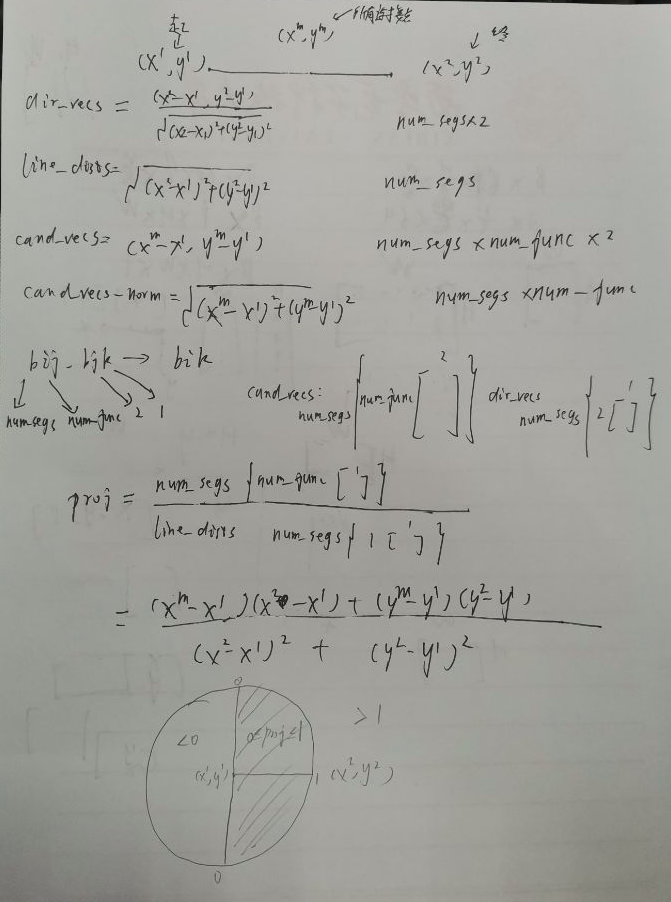 起 (x^m, y^m) ✓所有离散点
(x¹, y¹) (x², y²) 终
dir_vecs = (x²-x¹, y²-y¹) / √(x2-x1)²+(y²-y1)² num_segs×2
line_dists = √(x²-x¹)²+(y²-y¹)² num_segs
cand_vecs = (x^m-x¹, y^m-y¹) num_segs × num_func × 2
cand_vecs-norm = √(x^m-x¹)²+(y^m-y¹)² num_segs × num-func
bij. bjk → bik
num segs num_func 2 1
cand_vecs: num_segs { num_func [ 2 ] } dir_vecs num_segs { 2 [ 1 ] }
proj = num_segs { num_func [ 1 ] } / line_dists num_segs { 1 [ 1 ] }
= (x^m-x¹)(x²-x¹) + (y^m-y¹)(y²-y¹) / (x²-x¹)² + (y²-y¹)²
0
<0 0≤proj≤1 >1
(x¹,y¹) 1 (x²,y²)
0